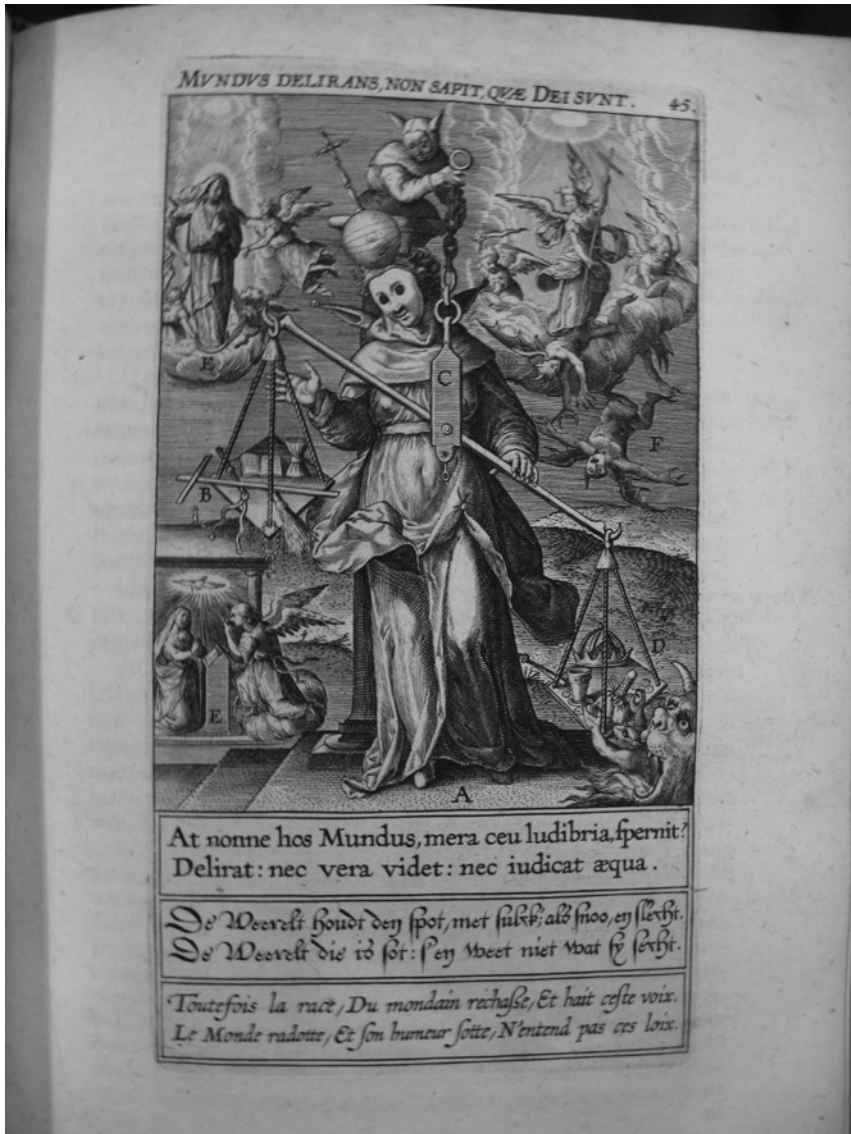 MVNDVS DELIRANS, NON SAPIT, QVÆ DEI SVNT. 45.
E
C
B
F
E
D
A
At nonne hos Mundus, mera ceu ludibria, ſpernit?
Delirat: nec vera videt: nec iudicat æqua.
De Weerelt houdt den ſpot, met ſulck; als ſnoo, en ſlecht.
De Weerelt die is ſot: ſ'en weet niet wat ſy ſecht.
Toutefois la race, Du mondain rechaſſe, Et hait ceſte voix.
Le Monde radotte, Et ſon humeur ſotte, N'entend pas ces loix.